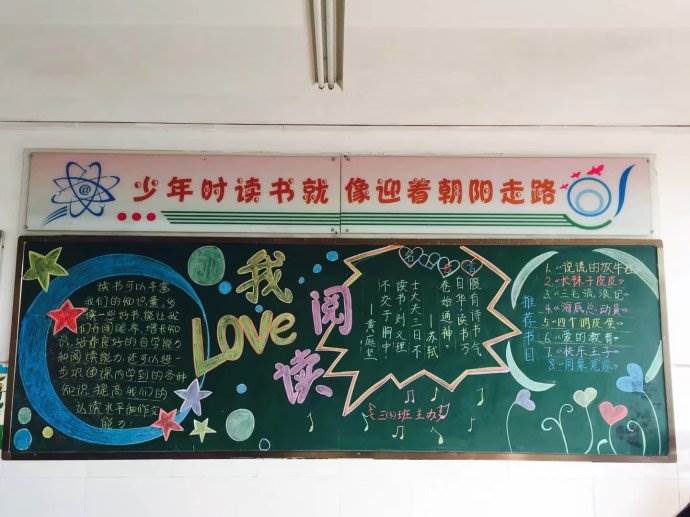 少年时读书就 像迎着朝阳走路
读书可以丰富
我们的知识量,多
读一些好书,能让我
们开阔眼界,增长知
识,培养良好的自学能力
和阅读能力,还可以进一
步巩固课内学到的各种
知识,提高我们的
读水平和作文
能力.
我
Love
阅
读
腹有诗书气
自华读书万
卷始通神
——苏轼
士大夫三日不
读书则义理
不交于胸中
——黄庭坚
班主办
推荐书目
1.《说谎的放牛
2.《长袜子皮皮》
3.《三毛流浪记》
4.《海底总动员》
5.《四个调皮蛋》
6.《爱的教育》
7.《快乐王子》
8.